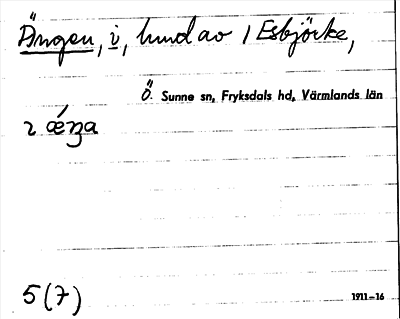 Ängen, i, lund av 1 Esbjörke,
Ö. Sunne sn, Fryksdals hd, Värmlands län
ı ǽŋa
5(7)
1911–16